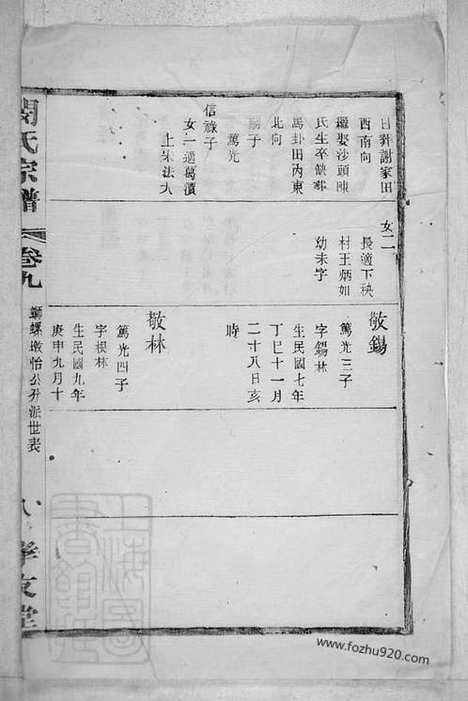 日葬謝家田
西南向
繼娶沙頭陳
氏生卒缺葬
馬卦田內東
北向
嗣子
篤光
信祿子
女一適葛濆
上宋法大
女二
長適下秧
村王炳如
幼未字
敬錫
篤光三子
字錫林
生民國七年
丁巳十一月
二十八日亥
時
敬林
篤光四子
字根林
生民國九年
庚申九月十
氏宗譜
卷九
螺墩怡公升派世表
八
孝友堂
上海圖書館藏
www.fozhu920.com